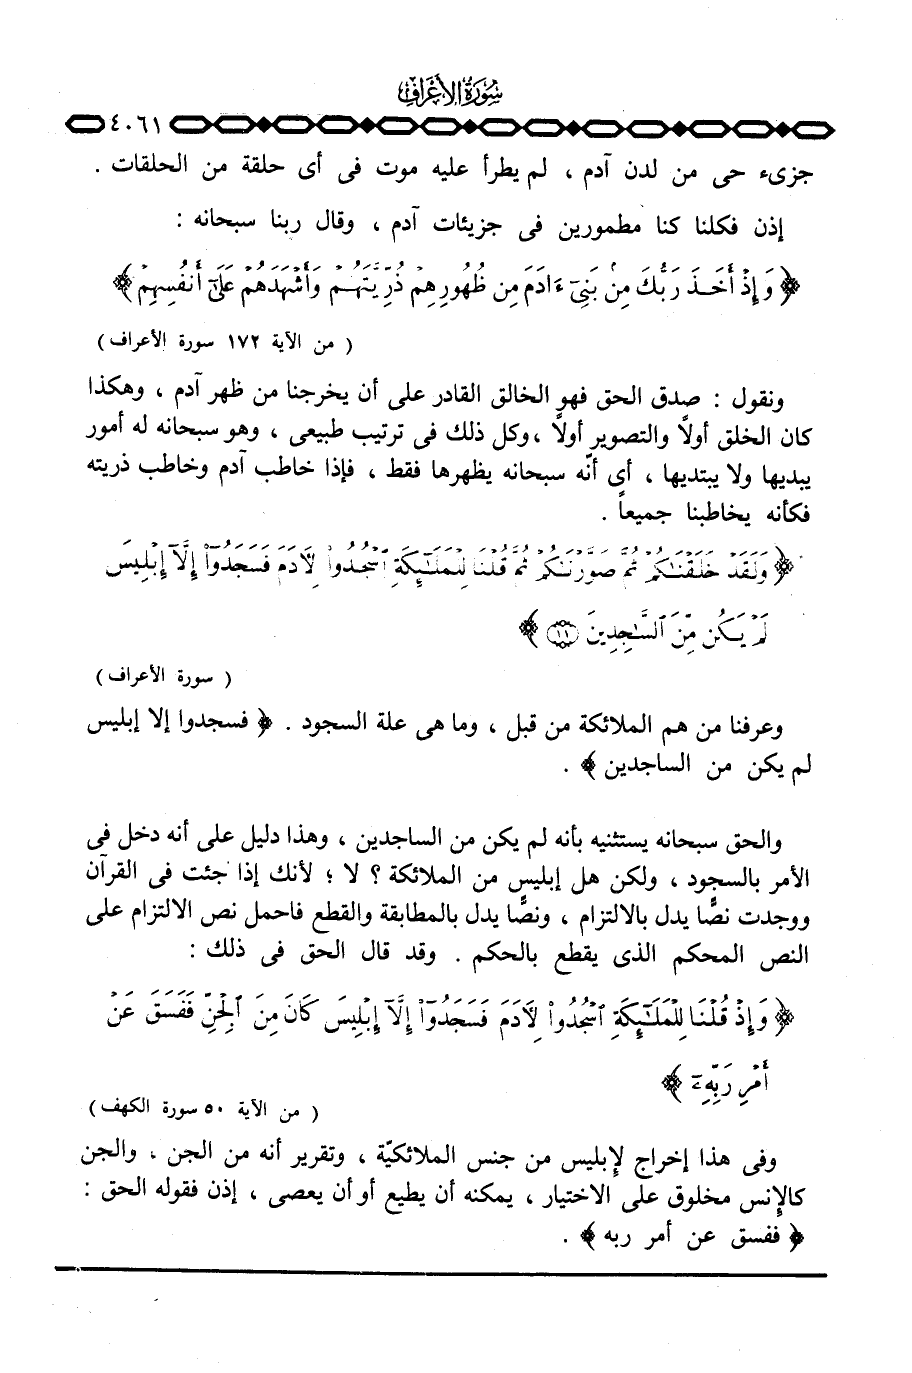 سُورَةُ الأَعْرَافِ
٤٠٦١
جزىء حى من لدن آدم ، لم يطرأ عليه موت فى أى حلقة من الحلقات .
إذن فكلنا كنا مطمورين فى جزيئات آدم ، وقال ربنا سبحانه :
﴿ وَإِذْ أَخَذَ رَبُّكَ مِنۢ بَنِىٓ ءَادَمَ مِن ظُهُورِهِمْ ذُرِّيَّتَهُمْ وَأَشْهَدَهُمْ عَلَىٰٓ أَنفُسِهِمْ ﴾
( من الآية ١٧٢ سورة الأعراف )
ونقول : صدق الحق فهو الخالق القادر على أن يخرجنا من ظهر آدم ، وهكذا
كان الخلق أولاً والتصوير أولاً ،وكل ذلك فى ترتيب طبيعى ، وهو سبحانه له أمور
يبديها ولا يبتديها ، أى أنّه سبحانه يظهرها فقط ، فإذا خاطب آدم وخاطب ذريته
فكأنه يخاطبنا جميعاً .
﴿ وَلَقَدْ خَلَقْنَٰكُمْ ثُمَّ صَوَّرْنَٰكُمْ ثُمَّ قُلْنَا لِلْمَلَٰٓئِكَةِ ٱسْجُدُوا۟ لِءَادَمَ فَسَجَدُوٓا۟ إِلَّآ إِبْلِيسَ
لَمْ يَكُن مِّنَ ٱلسَّٰجِدِينَ ۝١١ ﴾
( سورة الأعراف )
وعرفنا من هم الملائكة من قبل ، وما هى علة السجود . ﴿ فسجدوا إلا إبليس
لم يكن من الساجدين ﴾ .
والحق سبحانه يستثنيه بأنه لم يكن من الساجدين ، وهذا دليل على أنه دخل فى
الأمر بالسجود ، ولكن هل إبليس من الملائكة ؟ لا ؛ لأنك إذا جئت فى القرآن
ووجدت نصًّا يدل بالالتزام ، ونصًّا يدل بالمطابقة والقطع فاحمل نص الالتزام على
النص المحكم الذى يقطع بالحكم . وقد قال الحق فى ذلك :
﴿ وَإِذْ قُلْنَا لِلْمَلَٰٓئِكَةِ ٱسْجُدُوا۟ لِءَادَمَ فَسَجَدُوٓا۟ إِلَّآ إِبْلِيسَ كَانَ مِنَ ٱلْجِنِّ فَفَسَقَ عَنْ
أَمْرِ رَبِّهِۦٓ ﴾
( من الآية ٥٠ سورة الكهف )
وفى هذا إخراج لإبليس من جنس الملائكيّة ، وتقرير أنه من الجن ، والجن
كالإنس مخلوق على الاختيار ، يمكنه أن يطيع أو أن يعصى ، إذن فقوله الحق :
﴿ ففسق عن أمر ربه ﴾ .